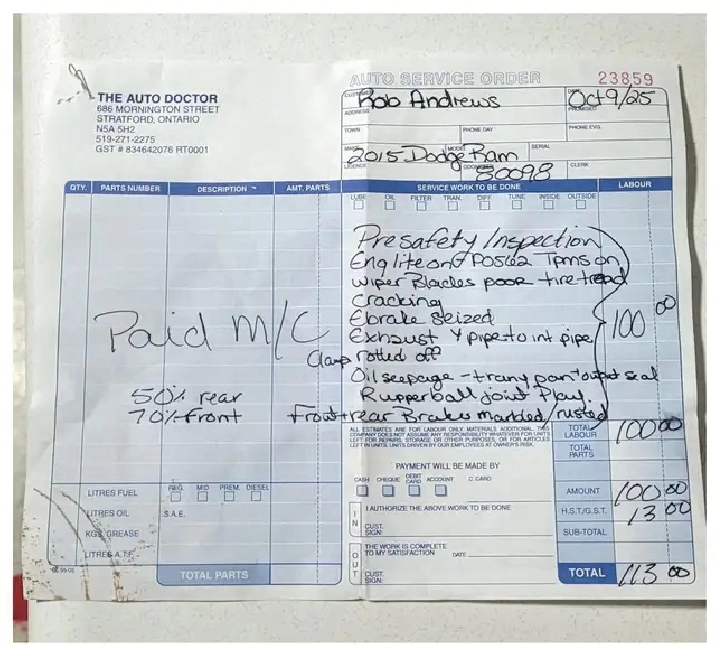 AUTO SERVICE ORDER 23859
THE AUTO DOCTOR
686 MORNINGTON STREET
STRATFORD, ONTARIO
N5A 5H2
519-271-2275
GST # 834642076 RT0001
CUSTOMER Rob Andrews
DATE Oct 9/25
ADDRESS
PROMISED
TOWN PHONE DAY PHONE EVG.
MAKE MODEL SERIAL
2015 Dodge Ram
LICENCE ODOMETER 80098 CLERK
QTY. PARTS NUMBER DESCRIPTION AMT. PARTS SERVICE WORK TO BE DONE LABOUR
LUBE OIL FILTER TRAN. DIFF. TUNE INSIDE OUTSIDE
Presafety Inspection
Englite on P0562 Tpms on
wiper Blades poor tire tread
cracking
Ebrake Seized
Exhaust Y pipe to int pipe
Clamp rotted off
Oil seepage - trany pan + output seal
Rupperball joint Play.
Front + rear Brakes marbled/rusted
100 00
Paid M/C
50% rear
70% front
ALL ESTIMATES ARE FOR LABOUR ONLY, MATERIALS ADDITIONAL. THIS
COMPANY DOES NOT ASSUME ANY RESPONSIBILITY WHATEVER FOR UNITS
LEFT FOR REPAIRS, STORAGE OR OTHER PURPOSES, OR FOR ARTICLES
LEFT IN UNITS. UNITS DRIVEN BY OUR EMPLOYEES AT OWNER'S RISK.
TOTAL LABOUR 100 00
TOTAL PARTS
PAYMENT WILL BE MADE BY
CASH CHEQUE DEBIT CARD ACCOUNT C. CARD
AMOUNT 100 00
H.S.T./G.S.T. 13 00
SUB-TOTAL
TOTAL 113 00
IN
I AUTHORIZE THE ABOVE WORK TO BE DONE
CUST. SIGN:
OUT
THE WORK IS COMPLETE
TO MY SATISFACTION DATE
CUST. SIGN:
REG. MID PREM. DIESEL
LITRES FUEL
LITRES OIL S.A.E.
KGS. GREASE
LITRES A.T.F.
TOTAL PARTS